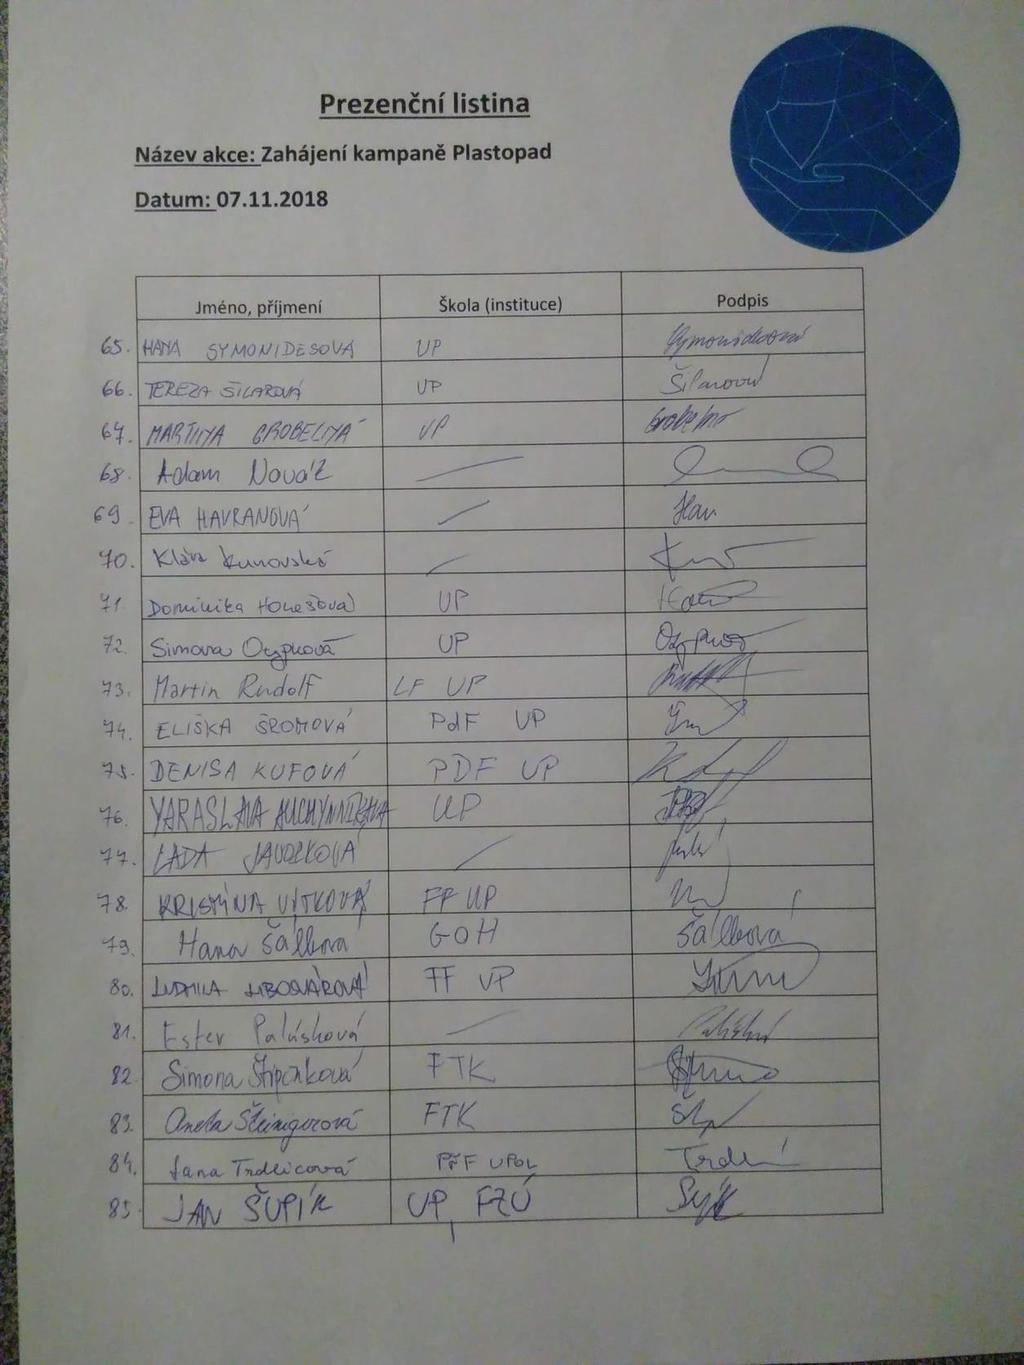 Prezenční listina
Název akce: Zahájení kampaně Plastopad
Datum: 07.11.2018
Jméno, příjmení Škola (instituce) Podpis
65. HANA SYMONIDESOVÁ UP Symonidesová
66. TEREZA ŠILAROVÁ UP Šilarová
67. MARTINA GROBELNÁ UP
68. Adam Novák
69. EVA HAVRANOVÁ Hav
70. Klára Kunovská
71. Dominika UP
72. Simona Ocypková UP
73. Martin Rudolf LF UP
74. ELIŠKA ŠROMOVÁ PdF UP
75. DENISA KUFOVÁ PDF UP
76. YARASLAVA AUCHYNNIKAVA UP
77. LADA JAVORKOVÁ
78. KRISTÝNA VÝTKOVÁ FF UP
79. Hana Šálková GOH Šálková
80. LUDMILA LIBOSVÁROVÁ FF UP
81. Ester Palásková
82. Simona Štipčáková FTK
83. Aneta Šteinigerová FTK
84. Jana Trdlicová PřF UPOL
85. JAN ŠUPÍK UP, FZÚ